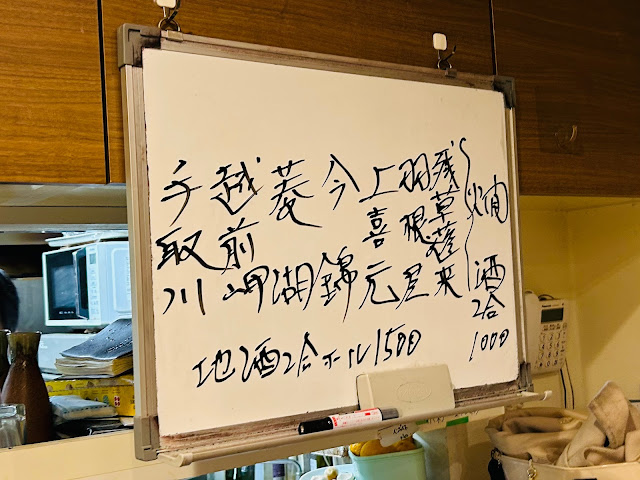 燗酒2合1000
残草蓬来
羽根屋
上喜元
今錦
菱湖
越前岬
手取川
地酒2合 1500